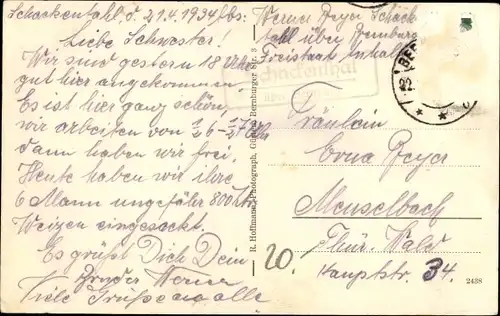 Schackenthal, d. 21.4.1934 Abs:
Liebe Schwester!
Wir sind gestern 18 Uhr
gut hier angekommen.
Es ist hier ganz schön
wir arbeiten von
dann haben wir frei.
Heute haben wir ihre
6 Mann ungefähr 800 Ztr.
Weizen eingesackt.
Es grüßt Dich Dein
Bruder Werner
Viele Grüße an alle
R. Hoffmann, Photograph, Bernburger Str. 3
Werner Beyer Schack
thal über Bernburg
Freistaat Anhalt
Schackenthal
Fräulein
Erna Beyer
Meuselbach
Thür. Wald
Hauptstr. 34.
20.
2438